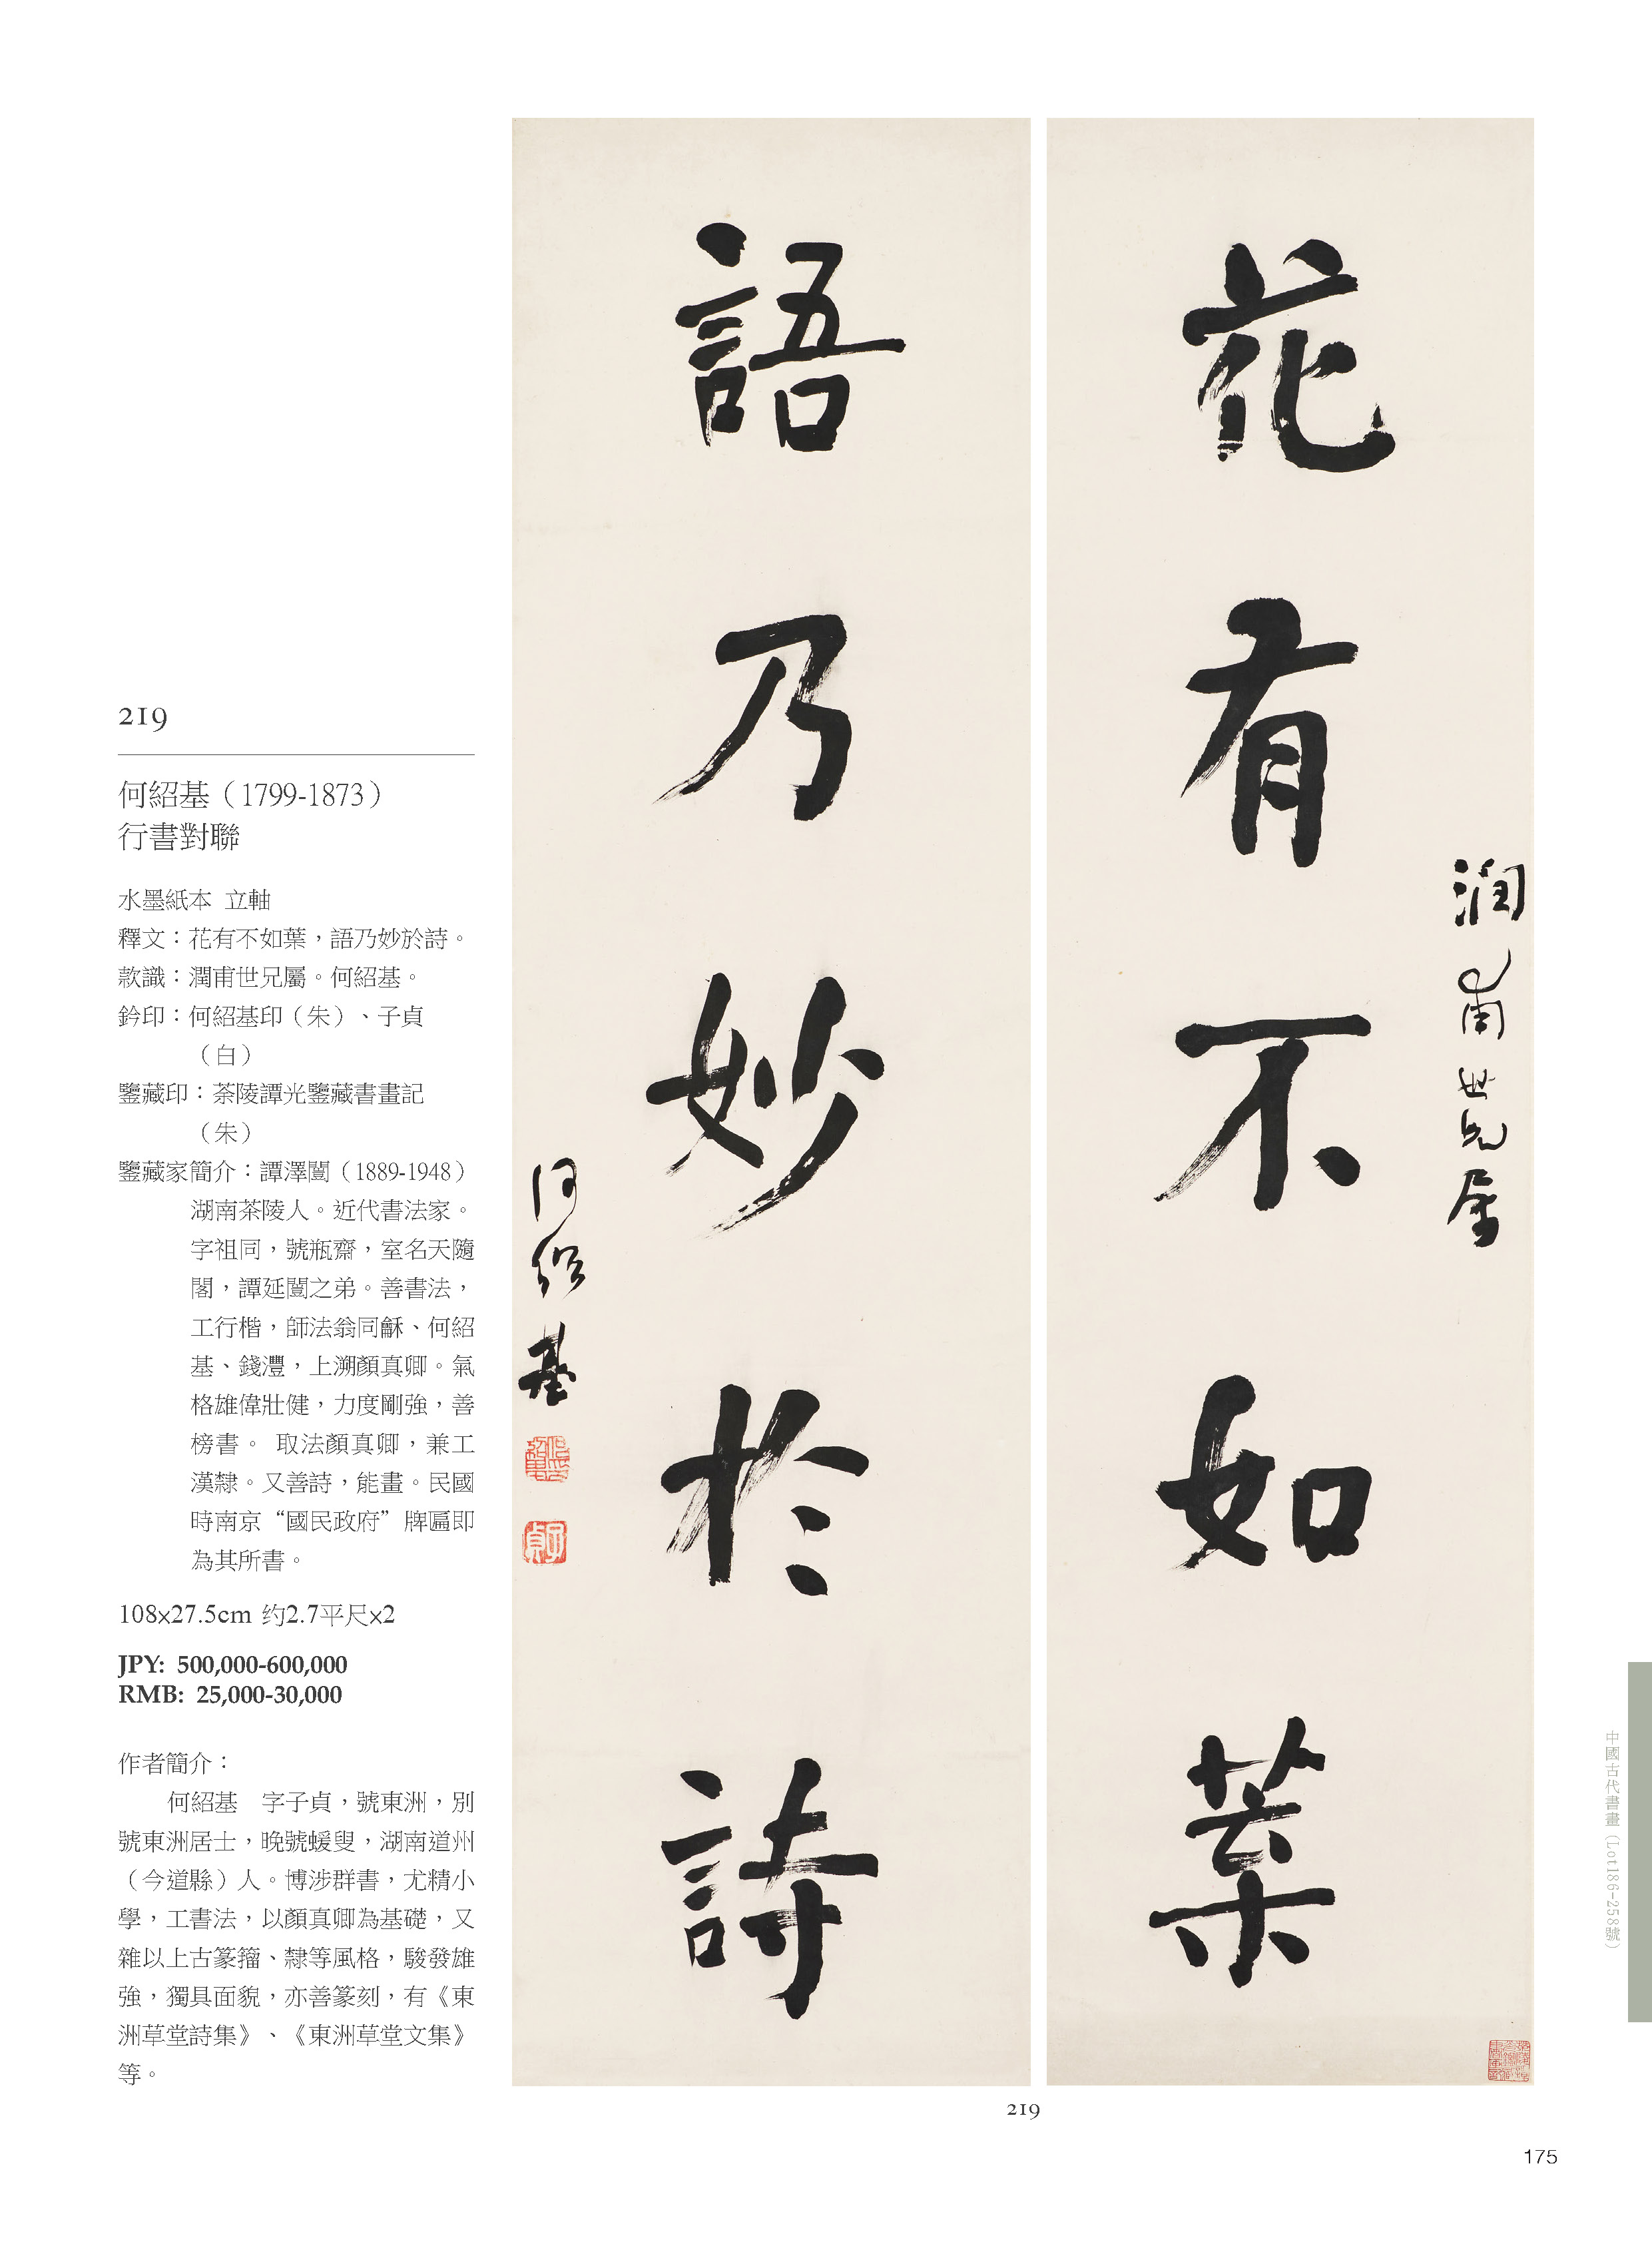 219
何紹基（1799-1873）
行書對聯
水墨紙本 立軸
釋文：花有不如葉，語乃妙於詩。
款識：潤甫世兄屬。何紹基。
鈐印：何紹基印（朱）、子貞
（白）
鑒藏印：茶陵譚光鑒藏書畫記
（朱）
鑒藏家簡介：譚澤闓（1889-1948）
湖南茶陵人。近代書法家。
字祖同，號瓶齋，室名天隨
閣，譚延闓之弟。善書法，
工行楷，師法翁同龢、何紹
基、錢灃，上溯顏真卿。氣
格雄偉壯健，力度剛強，善
榜書。 取法顏真卿，兼工
漢隸。又善詩，能畫。民國
時南京“國民政府”牌匾即
為其所書。
108x27.5cm 约2.7平尺x2
JPY: 500,000-600,000
RMB: 25,000-30,000
作者簡介：
何紹基 字子貞，號東洲，別
號東洲居士，晚號蝯叟，湖南道州
（今道縣）人。博涉群書，尤精小
學，工書法，以顏真卿為基礎，又
雜以上古篆籀、隸等風格，駿發雄
強，獨具面貌，亦善篆刻，有《東
洲草堂詩集》、《東洲草堂文集》
等。
潤甫世兄屬
花有不如葉
語乃妙於詩
何紹基
子貞
219
中國古代書畫（Lot186-258號）
175